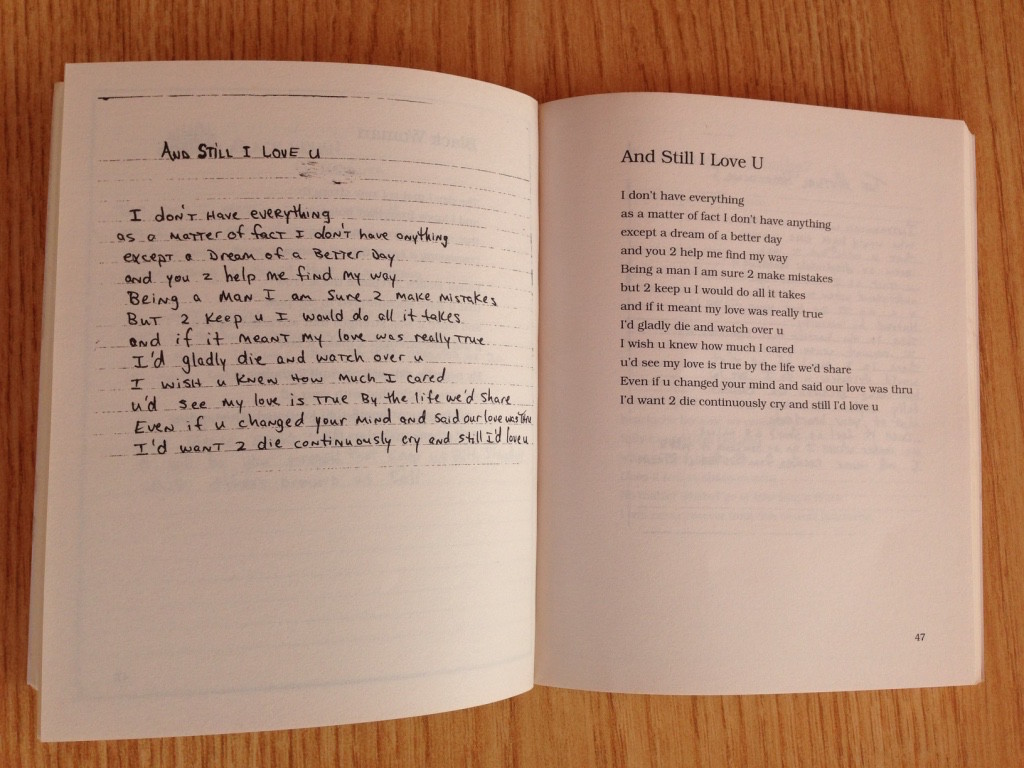 AND STILL I LOVE U
I don't Have everything
as a matter of fact I don't have anything
except a Dream of a Better Day
and you 2 help me find my way
Being a man I am sure 2 make mistakes
But 2 keep u I would do all it takes
and if it meant my love was really true
I'd gladly die and watch over u
I wish u knew how much I cared
u'd see my love is true By the life we'd share
Even if u changed your mind and said our love was thru
I'd want 2 die continuously cry and still I'd love u
And Still I Love U
I don't have everything
as a matter of fact I don't have anything
except a dream of a better day
and you 2 help me find my way
Being a man I am sure 2 make mistakes
but 2 keep u I would do all it takes
and if it meant my love was really true
I'd gladly die and watch over u
I wish u knew how much I cared
u'd see my love is true by the life we'd share
Even if u changed your mind and said our love was thru
I'd want 2 die continuously cry and still I'd love u
47